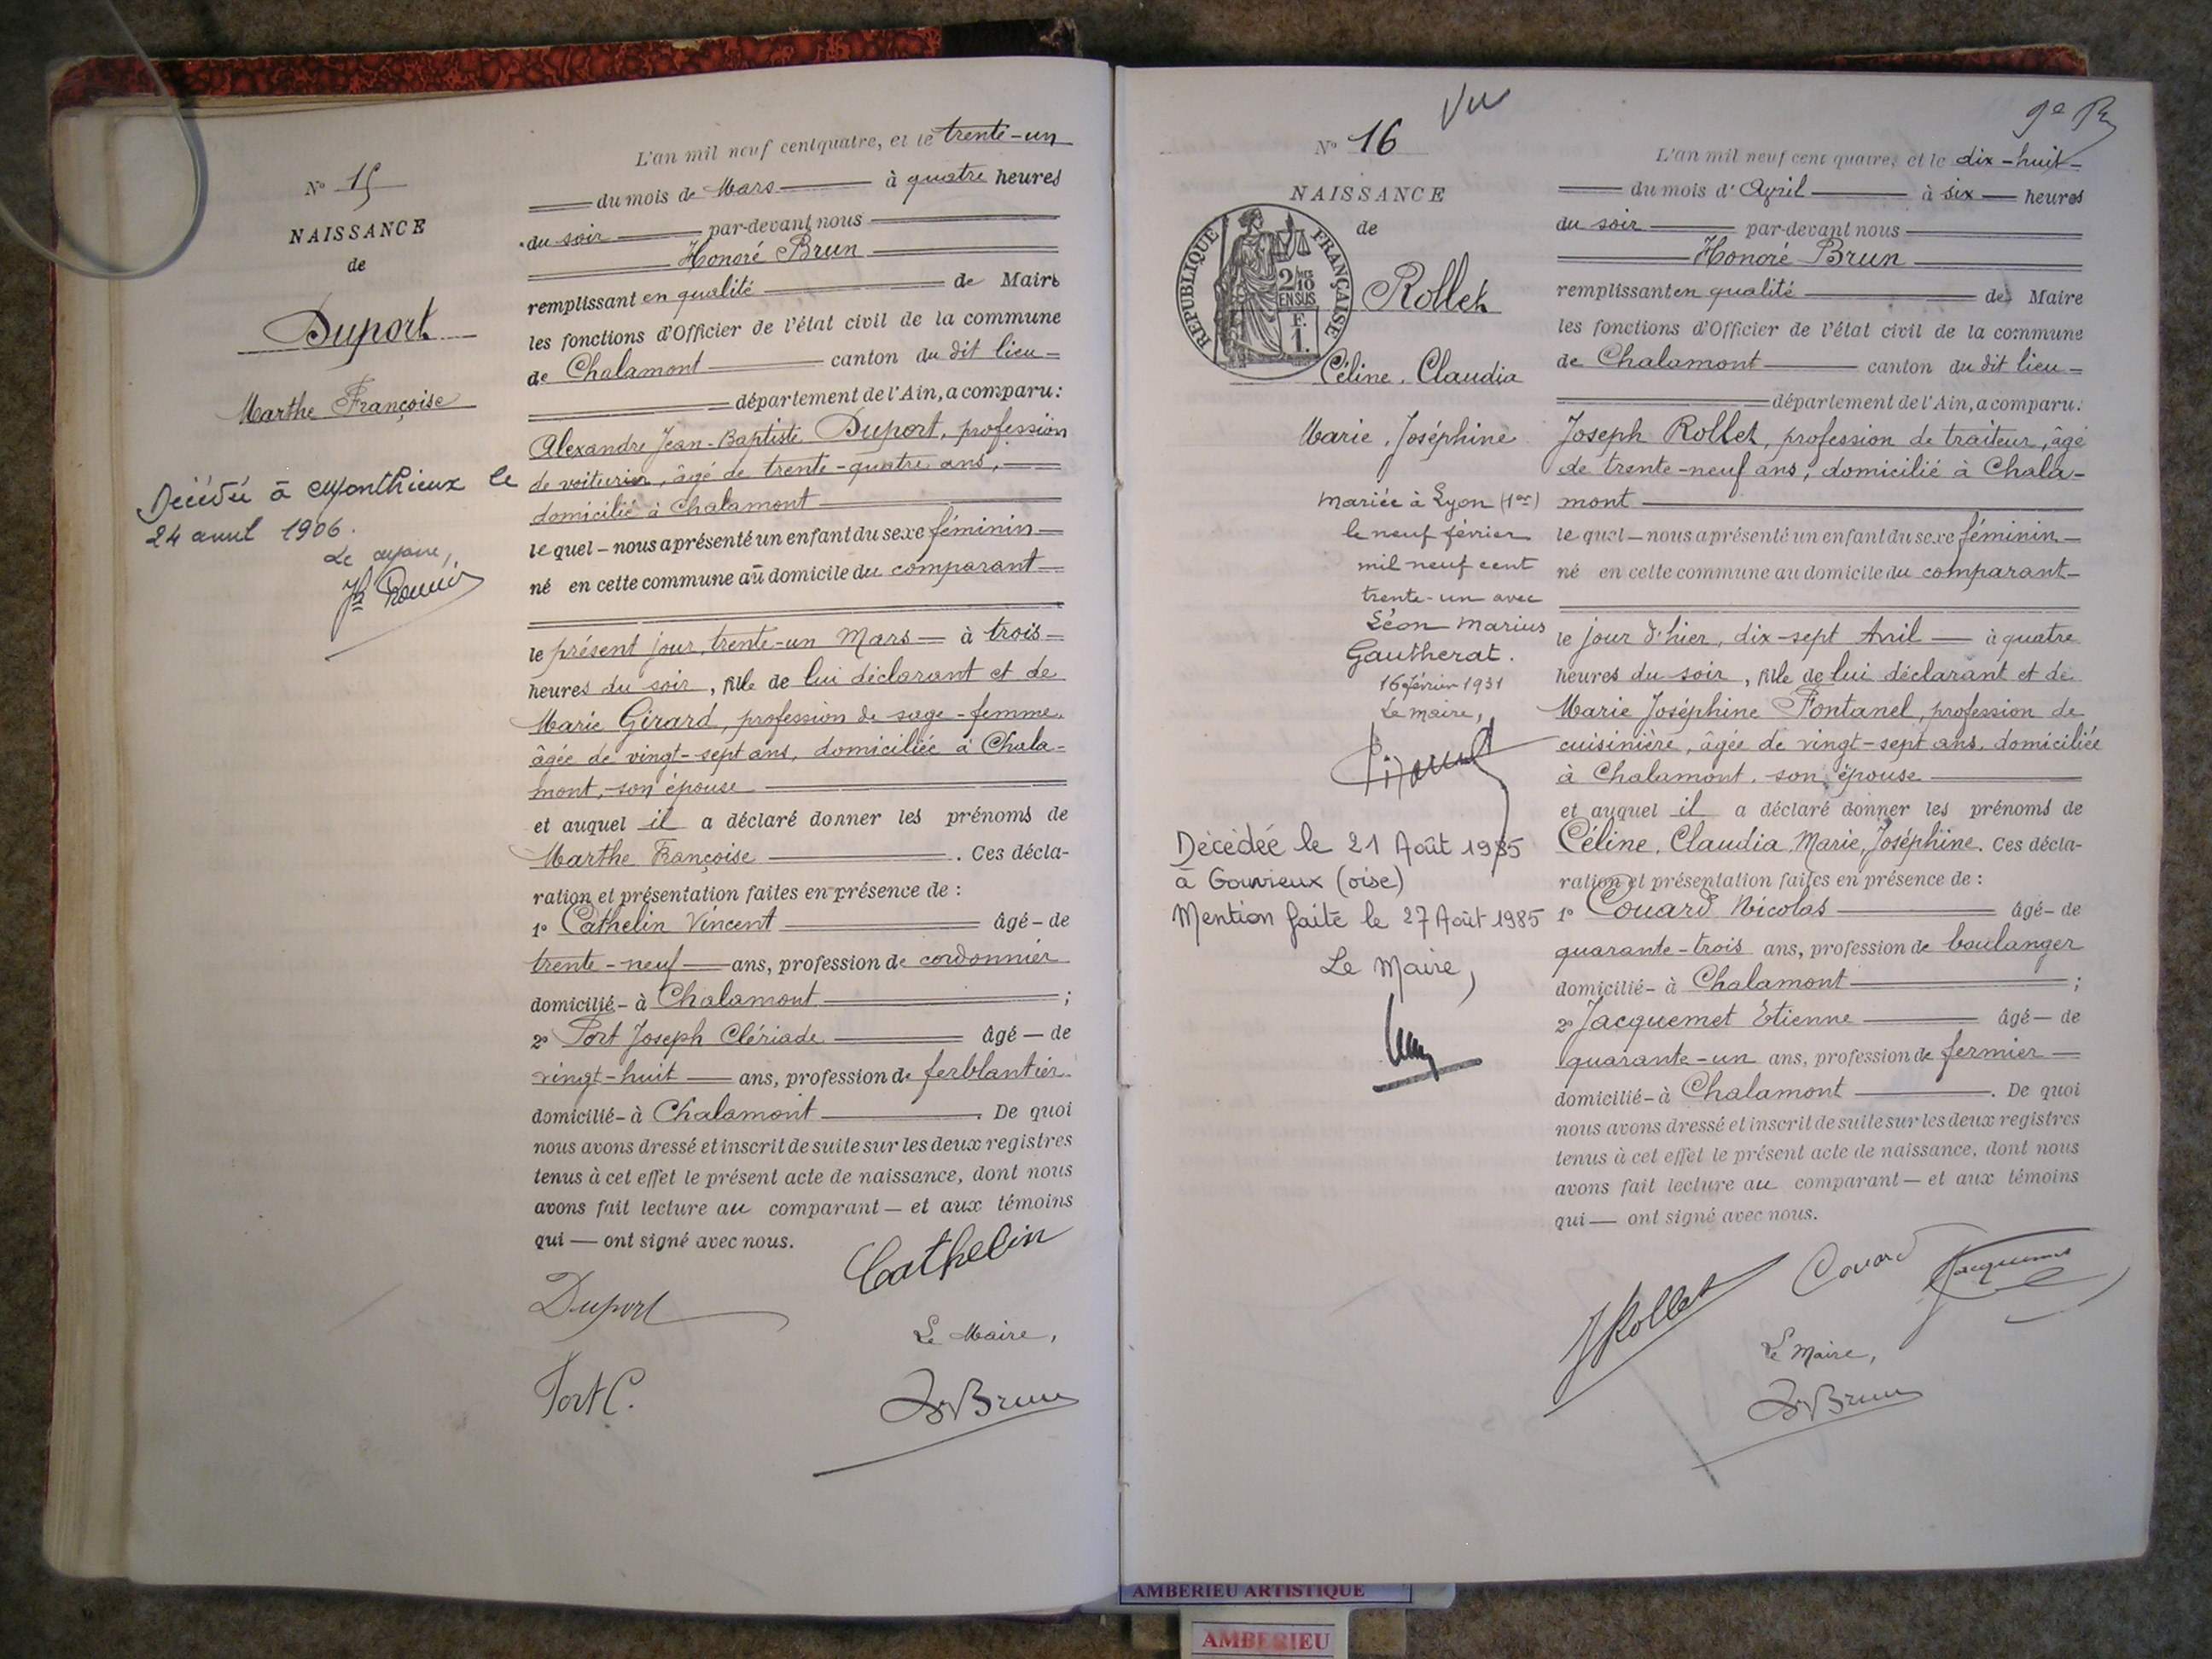 N° 15
NAISSANCE
de
Duport
Marthe Françoise
Décédée à Monthieux le
24 avril 1906.
Le Maire,
L'an mil neuf cent quatre, et le trente-un
du mois de Mars à quatre heures
du soir par-devant nous
Honoré Brun
remplissant en qualité de Maire
les fonctions d'Officier de l'état civil de la commune
de Chalamont canton du dit lieu
département de l'Ain, a comparu:
Alexandre Jean-Baptiste Duport, profession
de voiturier, âgé de trente-quatre ans,
domicilié à Chalamont
lequel nous a présenté un enfant du sexe féminin
né en cette commune au domicile du comparant
le présent jour, trente-un Mars à trois
heures du soir, fille de lui déclarant et de
Marie Girard, profession de sage-femme,
âgée de vingt-sept ans, domiciliée à Chala-
mont, son épouse
et auquel il a déclaré donner les prénoms de
Marthe Françoise. Ces décla-
ration et présentation faites en présence de :
1° Cathelin Vincent âgé de
trente-neuf ans, profession de cordonnier
domicilié à Chalamont ;
2° Fort Joseph Clériade âgé de
vingt-huit ans, profession de ferblantier
domicilié à Chalamont. De quoi
nous avons dressé et inscrit de suite sur les deux registres
tenus à cet effet le présent acte de naissance, dont nous
avons fait lecture au comparant et aux témoins
qui ont signé avec nous.
Cathelin
Duport
Le Maire,
Fort C.
Brun
Vu
N° 16
NAISSANCE
de
REPUBLIQUE FRANÇAISE
2/10
EN SUS
F.
1.
Rollet
Céline, Claudia
Marie, Joséphine
Mariée à Lyon (1er)
le neuf février
mil neuf cent
trente-un avec
Léon Marius
Gautherat.
16 février 1931
Le maire,
Décédée le 21 Août 1985
à Gouvieux (oise)
Mention faite le 27 Août 1985
Le Maire,
L'an mil neuf cent quatre, et le dix-huit
du mois d'Avril à six heures
du soir par-devant nous
Honoré Brun
remplissant en qualité de Maire
les fonctions d'Officier de l'état civil de la commune
de Chalamont canton du dit lieu
département de l'Ain, a comparu:
Joseph Rollet, profession de traiteur, âgé
de trente-neuf ans, domicilié à Chala-
mont
lequel nous a présenté un enfant du sexe féminin
né en cette commune au domicile du comparant
le jour d'hier, dix-sept Avril à quatre
heures du soir, fille de lui déclarant et de
Marie Joséphine Fontanel, profession de
cuisinière, âgée de vingt-sept ans, domiciliée
à Chalamont, son épouse
et auquel il a déclaré donner les prénoms de
Céline, Claudia, Marie, Joséphine. Ces décla-
ration et présentation faites en présence de :
1° Couard Nicolas âgé de
quarante-trois ans, profession de boulanger
domicilié à Chalamont ;
2° Jacquemet Etienne âgé de
quarante-un ans, profession de fermier
domicilié à Chalamont. De quoi
nous avons dressé et inscrit de suite sur les deux registres
tenus à cet effet le présent acte de naissance, dont nous
avons fait lecture au comparant et aux témoins
qui ont signé avec nous.
Couard Jacquemet
JRollet
Le Maire,
Brun
AMBERIEU ARTISTIQUE
AMBERIEU